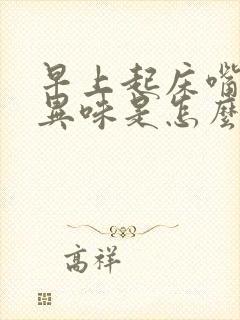 早上起床嘴
異味是怎麼
高祥